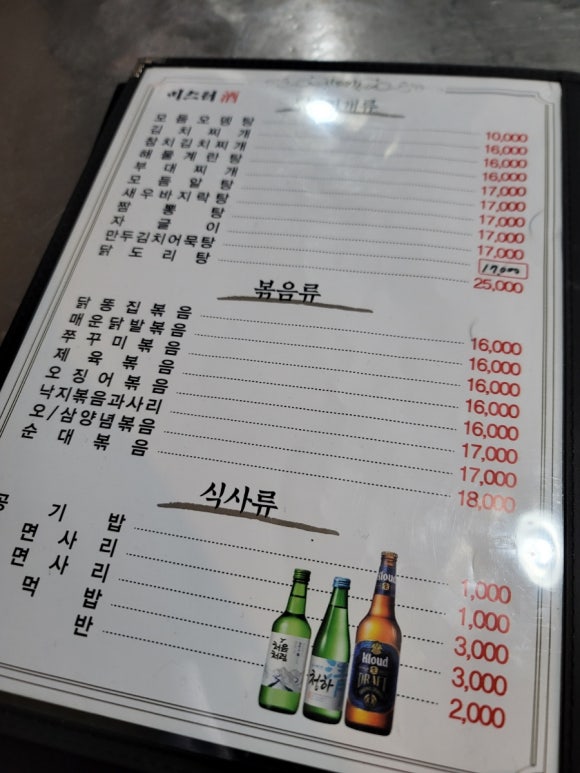 미스터 酒
개류
모듬오뎅탕 10,000
김치찌개 16,000
참치김치찌개 16,000
해물계란탕 16,000
부대찌개 17,000
모듬알탕 17,000
새우바지락탕 17,000
짬뽕탕 17,000
자글이 17,000
만두김치어묵탕 17,000
닭도리탕 25,000
볶음류
닭똥집볶음 16,000
매운닭발볶음 16,000
쭈꾸미볶음 16,000
제육볶음 16,000
오징어볶음 16,000
낙지볶음과사리 17,000
오/삼양념볶음 17,000
순대볶음 18,000
식사류
공기밥 1,000
면사리 1,000
면사리 3,000
먹밥 3,000
반 2,000
처음처럼
청하
Kloud
Kloud
DRAFT